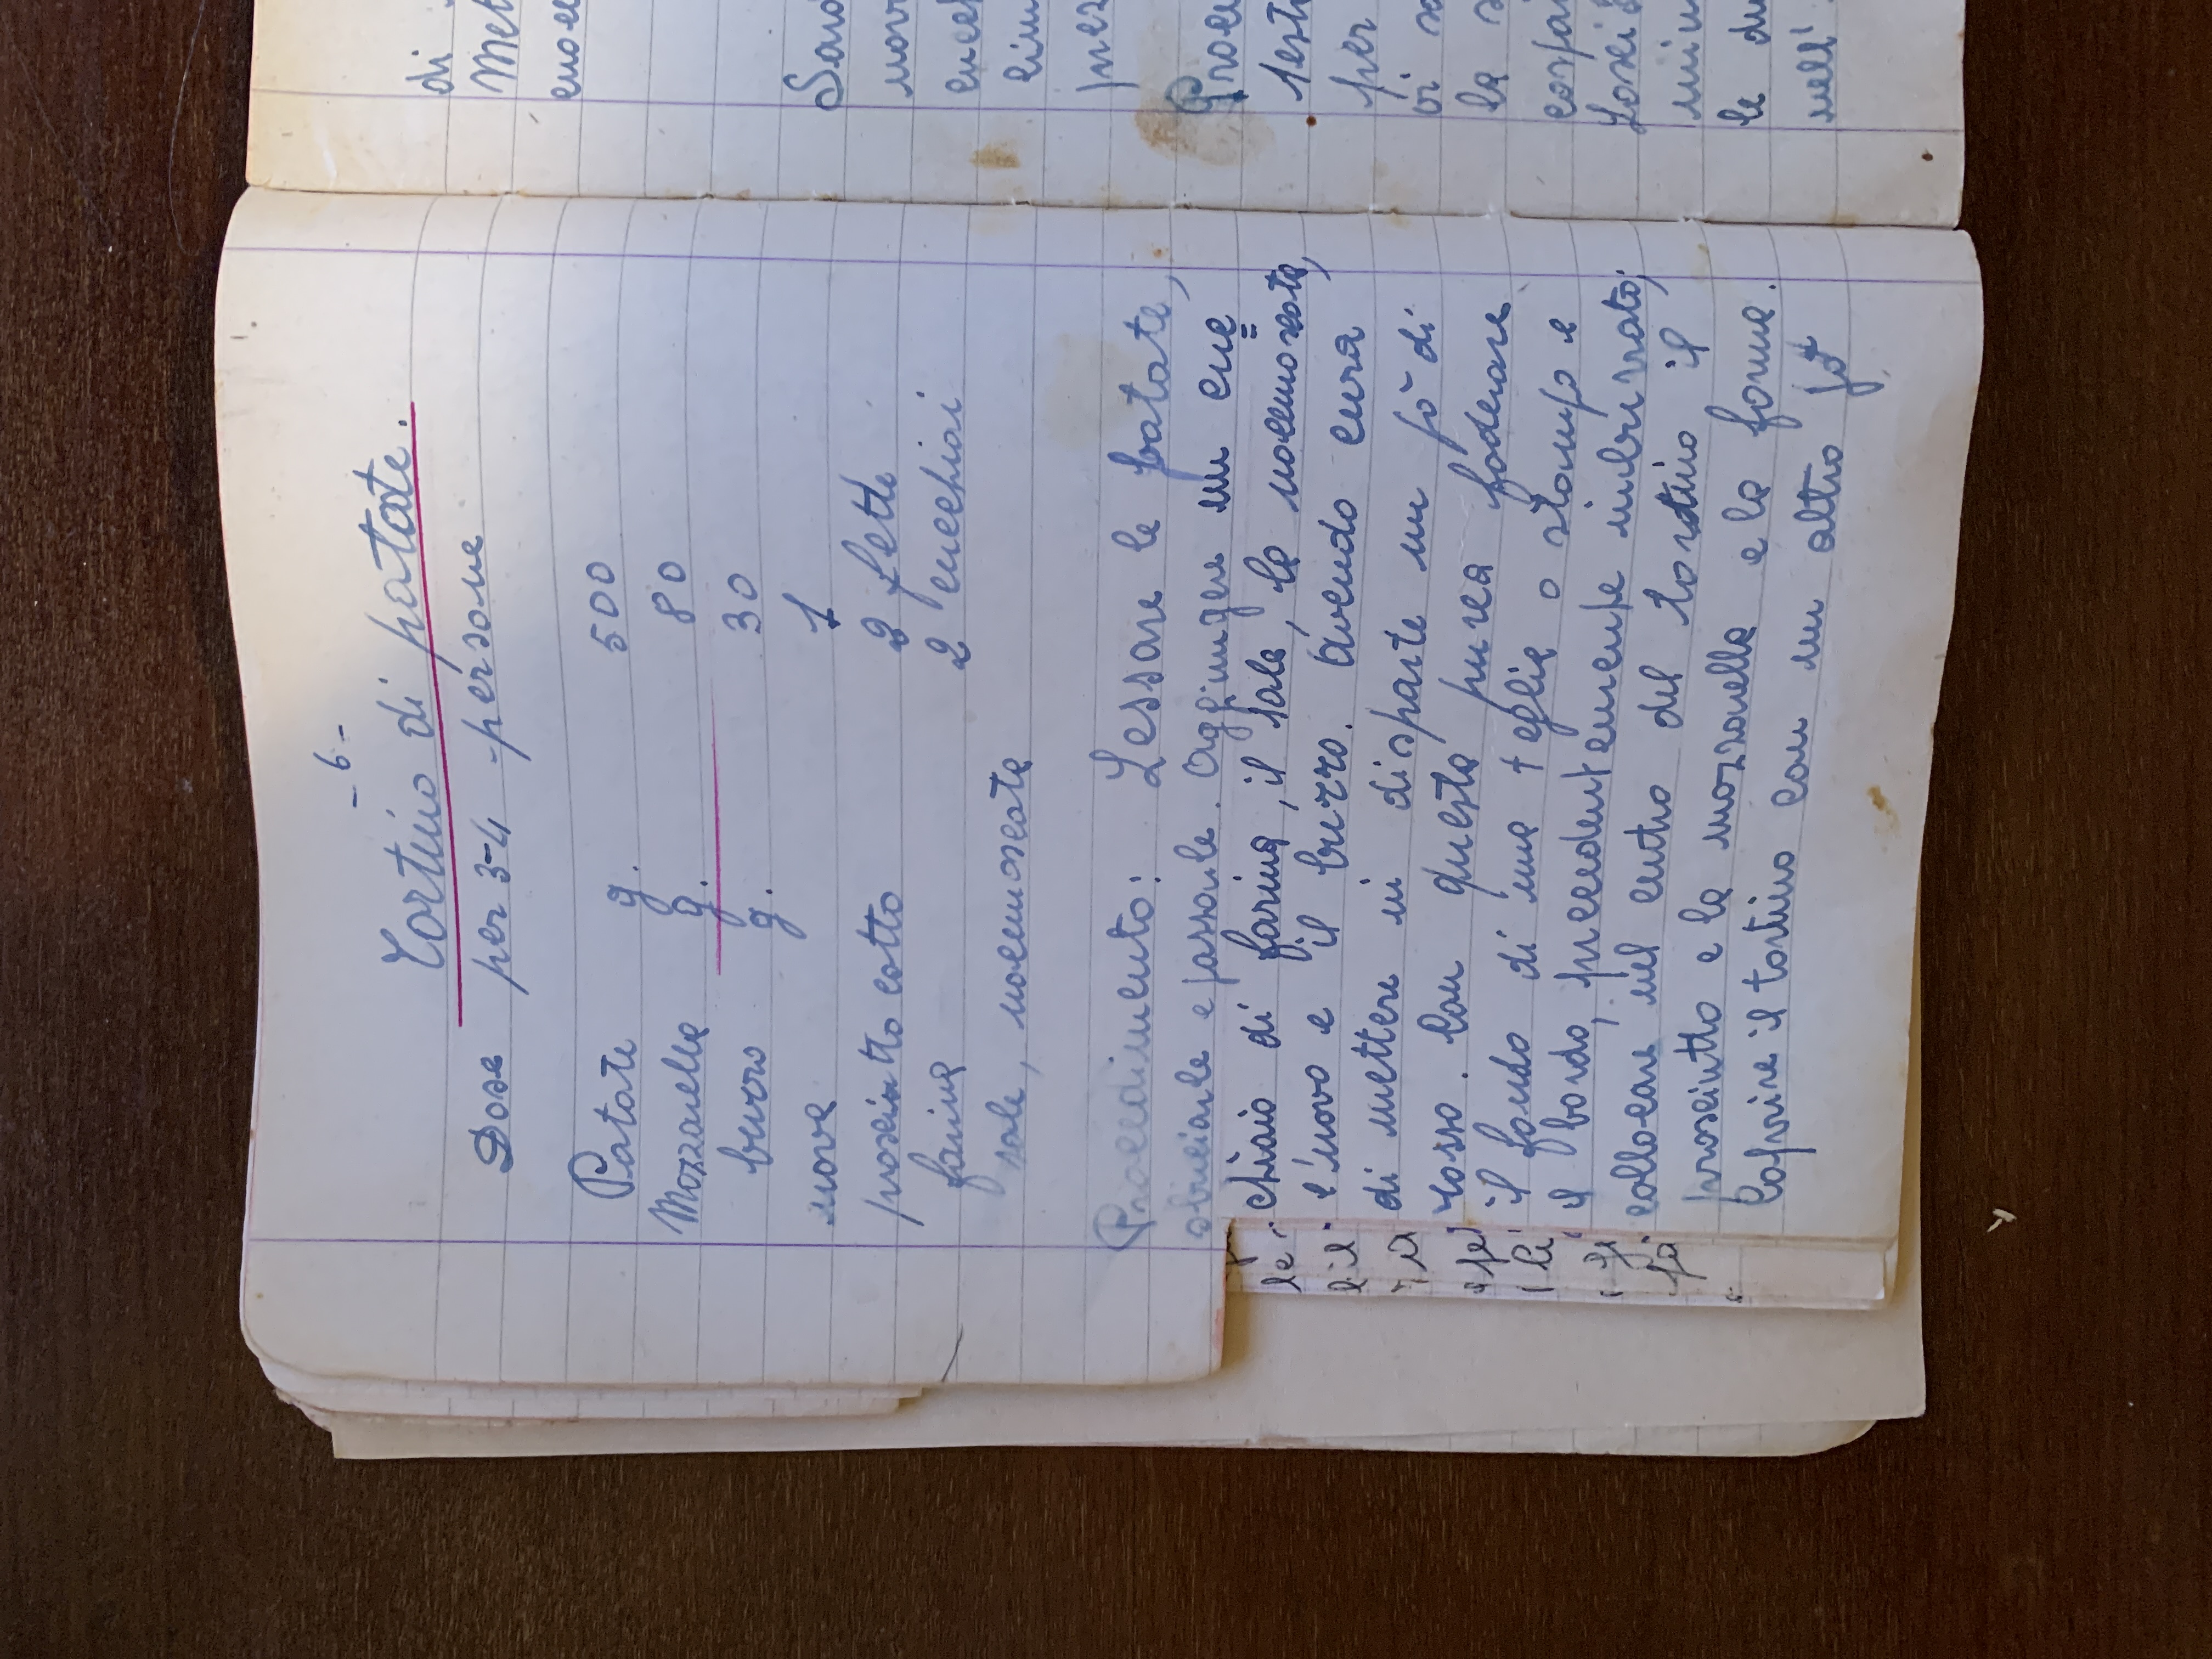 - 6 -
Tortino di patate.
Dose per 3-4 persone
Patate g. 500
Mozzarella g. 80
burro g. 30
uova 1
prosciutto cotto 2 fette
farina 2 cucchiai
sale, nocemoscata
Procedimento: Lessare le patate,
sbucciarle e passarle. Aggiungere un cuc=
chiaio di farina, il sale, la nocemoscata,
l'uovo e il burro. Avendo cura
di mettere in disparte un pò di
rosso. Con questa purea foderare
il fondo di una teglia o stampo e
il bordo, precedentemente imburrato;
collocare nel centro del tortino il
prosciutto e la mozzarella e la
Coprire il tortino con un altro pò
di
Met
Sard
uov
cucch
prez
Proce
testa
per
vi
la
cospa
min
le du
nell'
le
il